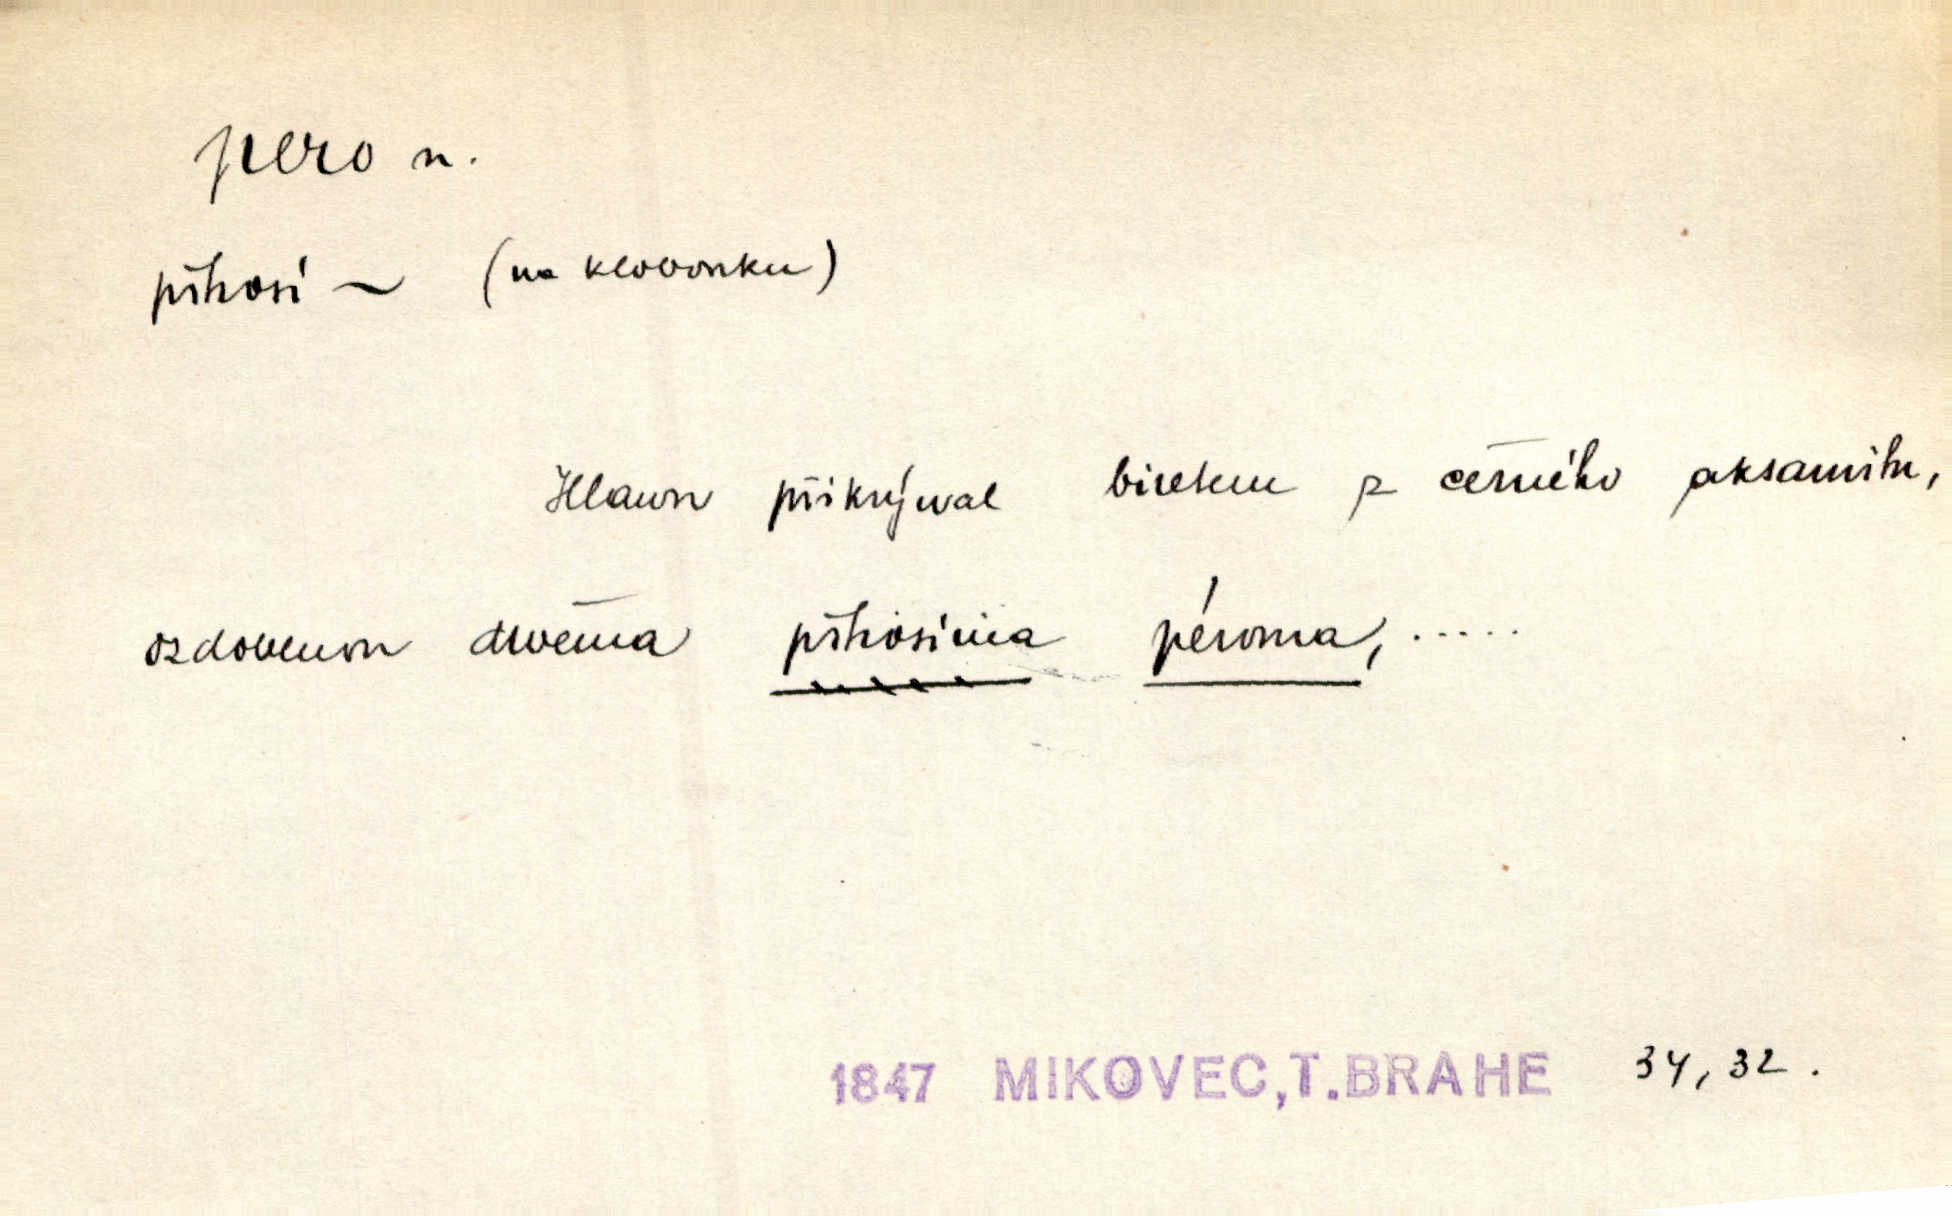 pero n.
pštrosí ~ (na klobouku)
Hlawu přikrýwal biretem z černého aksamitu,
ozdobenou dwěma pštrosima péroma, .....
1847 MIKOVEC, T. BRAHE 34, 32.